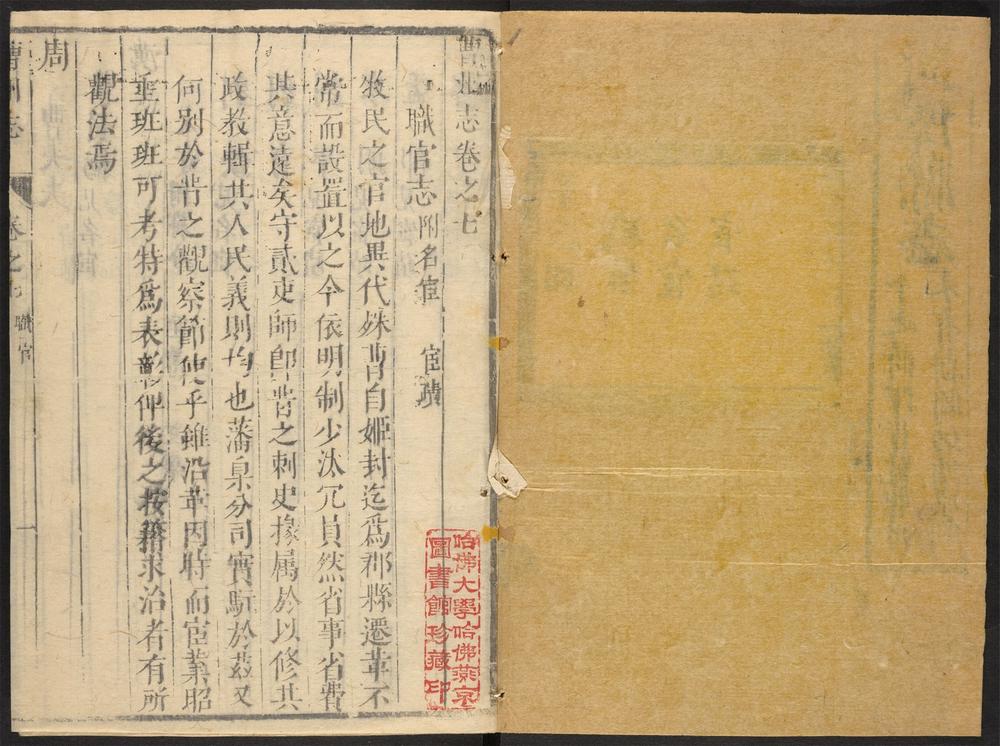 曹州志卷之七
職官志附名宦 宦蹟
牧民之官地異代殊曹自姬封迄爲郡縣遷革不
常而設置以之今依明制少汰冗員然省事省費
其意遠矣守貳吏師即昔之刺史掾属於以修其
政教輯其人民義則均也藩臬分司實駐於茲又
何别於昔之觀察節使乎雖沿革因時而宦業昭
垂班班可考特爲表彰俾後之按籍求治者有所
觀法焉
周
曹州志 卷之七 職官 一
哈佛大學哈佛燕京
圖書館珍藏印